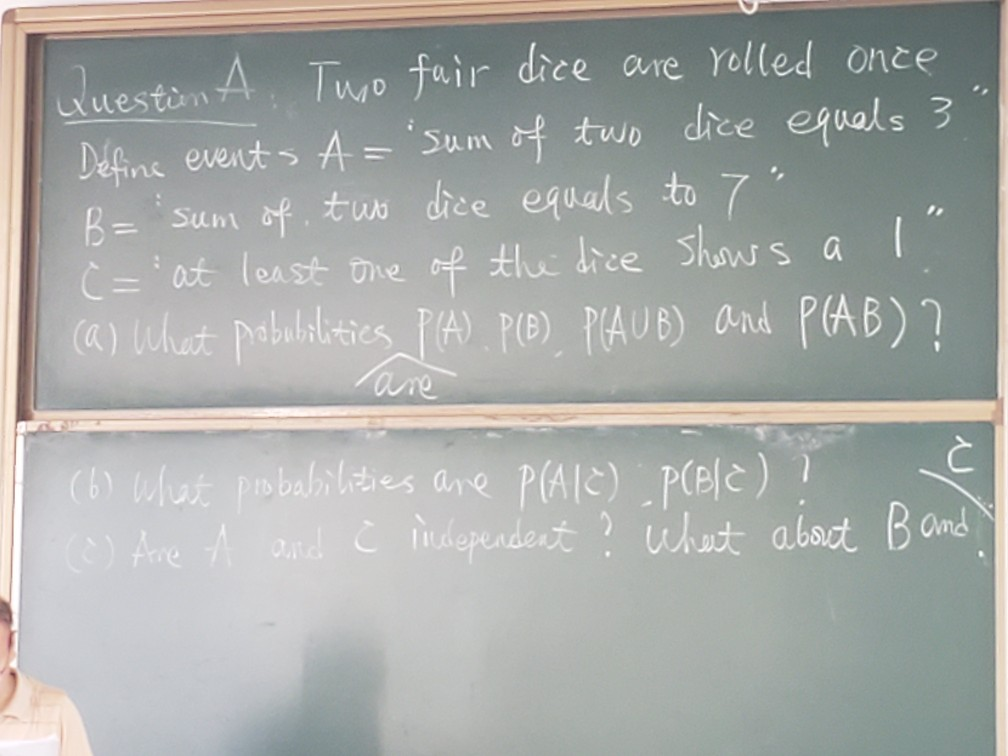 Question A: Two fair dice are rolled once
Define events A = "sum of two dice equals 3"
B = "sum of two dice equals to 7"
C = "at least one of the dice shows a 1".
(a) What probabilities are P(A), P(B), P(A∪B) and P(AB)?
(b) What probabilities are P(A|C), P(B|C)?
(c) Are A and C independent? What about B and C.